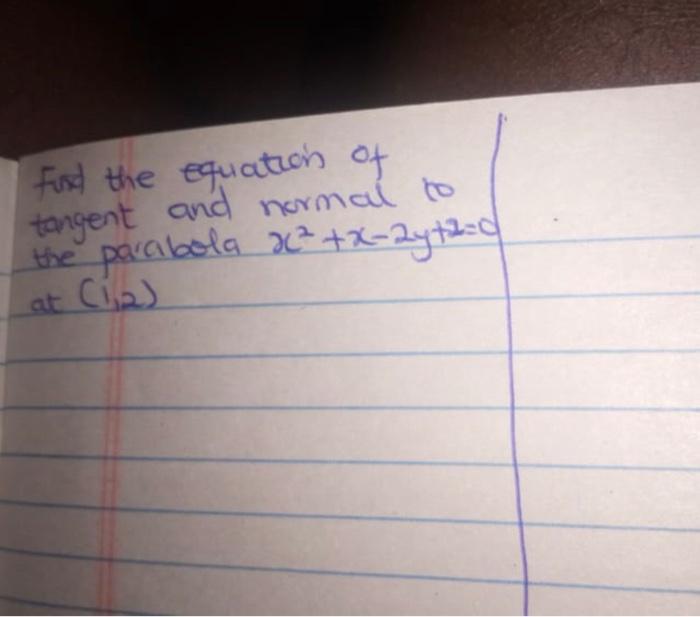 Find the equation of
tangent and normal to
the parabola x² + x - 2y + 2 = 0
at (1,2)